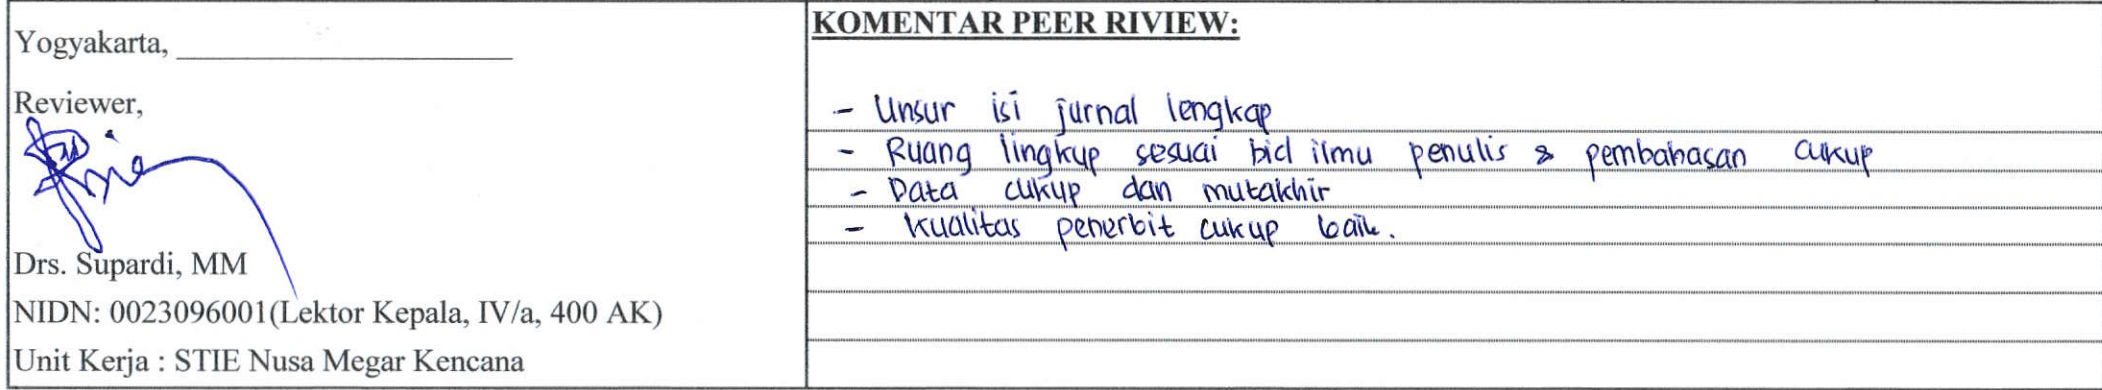 Yogyakarta, ____________________
Reviewer,
Drs. Supardi, MM
NIDN: 0023096001(Lektor Kepala, IV/a, 400 AK)
Unit Kerja : STIE Nusa Megar Kencana
KOMENTAR PEER RIVIEW:
- Unsur isi jurnal lengkap
- Ruang lingkup sesuai bid ilmu penulis & pembahasan cukup
- Data cukup dan mutakhir
- kualitas penerbit cukup baik.